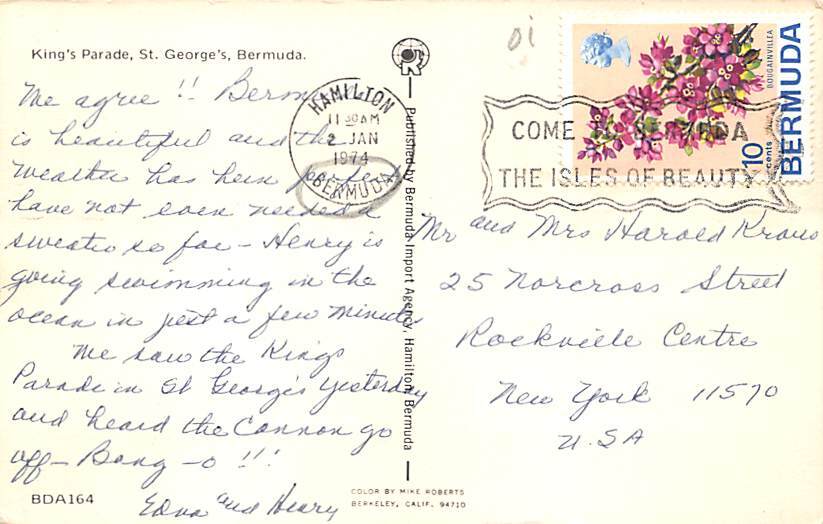 King's Parade, St. George's, Bermuda.
We agree!! Bermuda
is beautiful and the
weather has been perfect
have not even needed a
sweater so far - Henry is
going swimming in the
ocean in just a few minutes
We saw the Kings
Parade in St George's yesterday
and heard the Cannon go
off - Bang - o!!!
Edna and Henry
BDA164
Published by Bermuda Import Agency, Hamilton, Bermuda
COLOR BY MIKE ROBERTS
BERKELEY, CALIF. 94710
HAMILTON
11 30 AM
2 JAN
1974
BERMUDA
oi
COME TO BERMUDA
THE ISLES OF BEAUTY
BOUGAINVILLEA
10 cents
BERMUDA
Mr and Mrs Harold Kraus
25 Norcross Street
Rockville Centre
New York 11570
U.SA